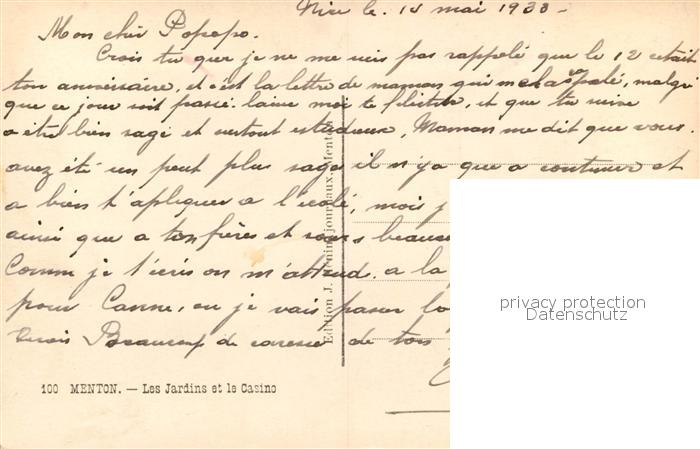 Nice le. 15 mai 1933 -
Mon cher Popopo.
Crois tu que je ne me suis pas rappelé que le 12 etait
ton aniversaire, et c'est la lettre de maman qui me la rapelé, malgré
que ce jour soit passé. laisse moi te feliciter, et que tu suive
a être bien sage et surtout estudieux, Maman me dit que vous
avez été un peut plus sage il n'ya que a continuer et
a bien t'apliquer a l'ecole, mois j
ainsi que a ton frères et sœurs beauco
Comme je t'écris on m'attend. a la
pour Canne, ou je vais passer la
Beaucoup de caresse de ton
Edition J. journaux, Menton
100 MENTON. — Les Jardins et le Casino
privacy protection
Datenschutz